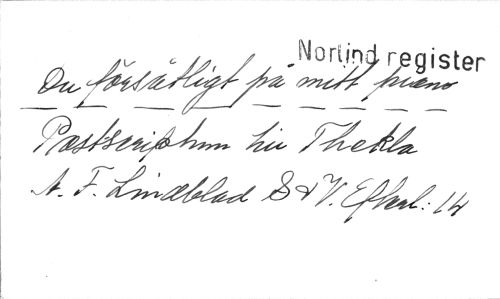 Norlind register
Du försåtligt på mitt piano
Postscriptum till Thekla
A. F. Lindblad S & V. Efterl: 14